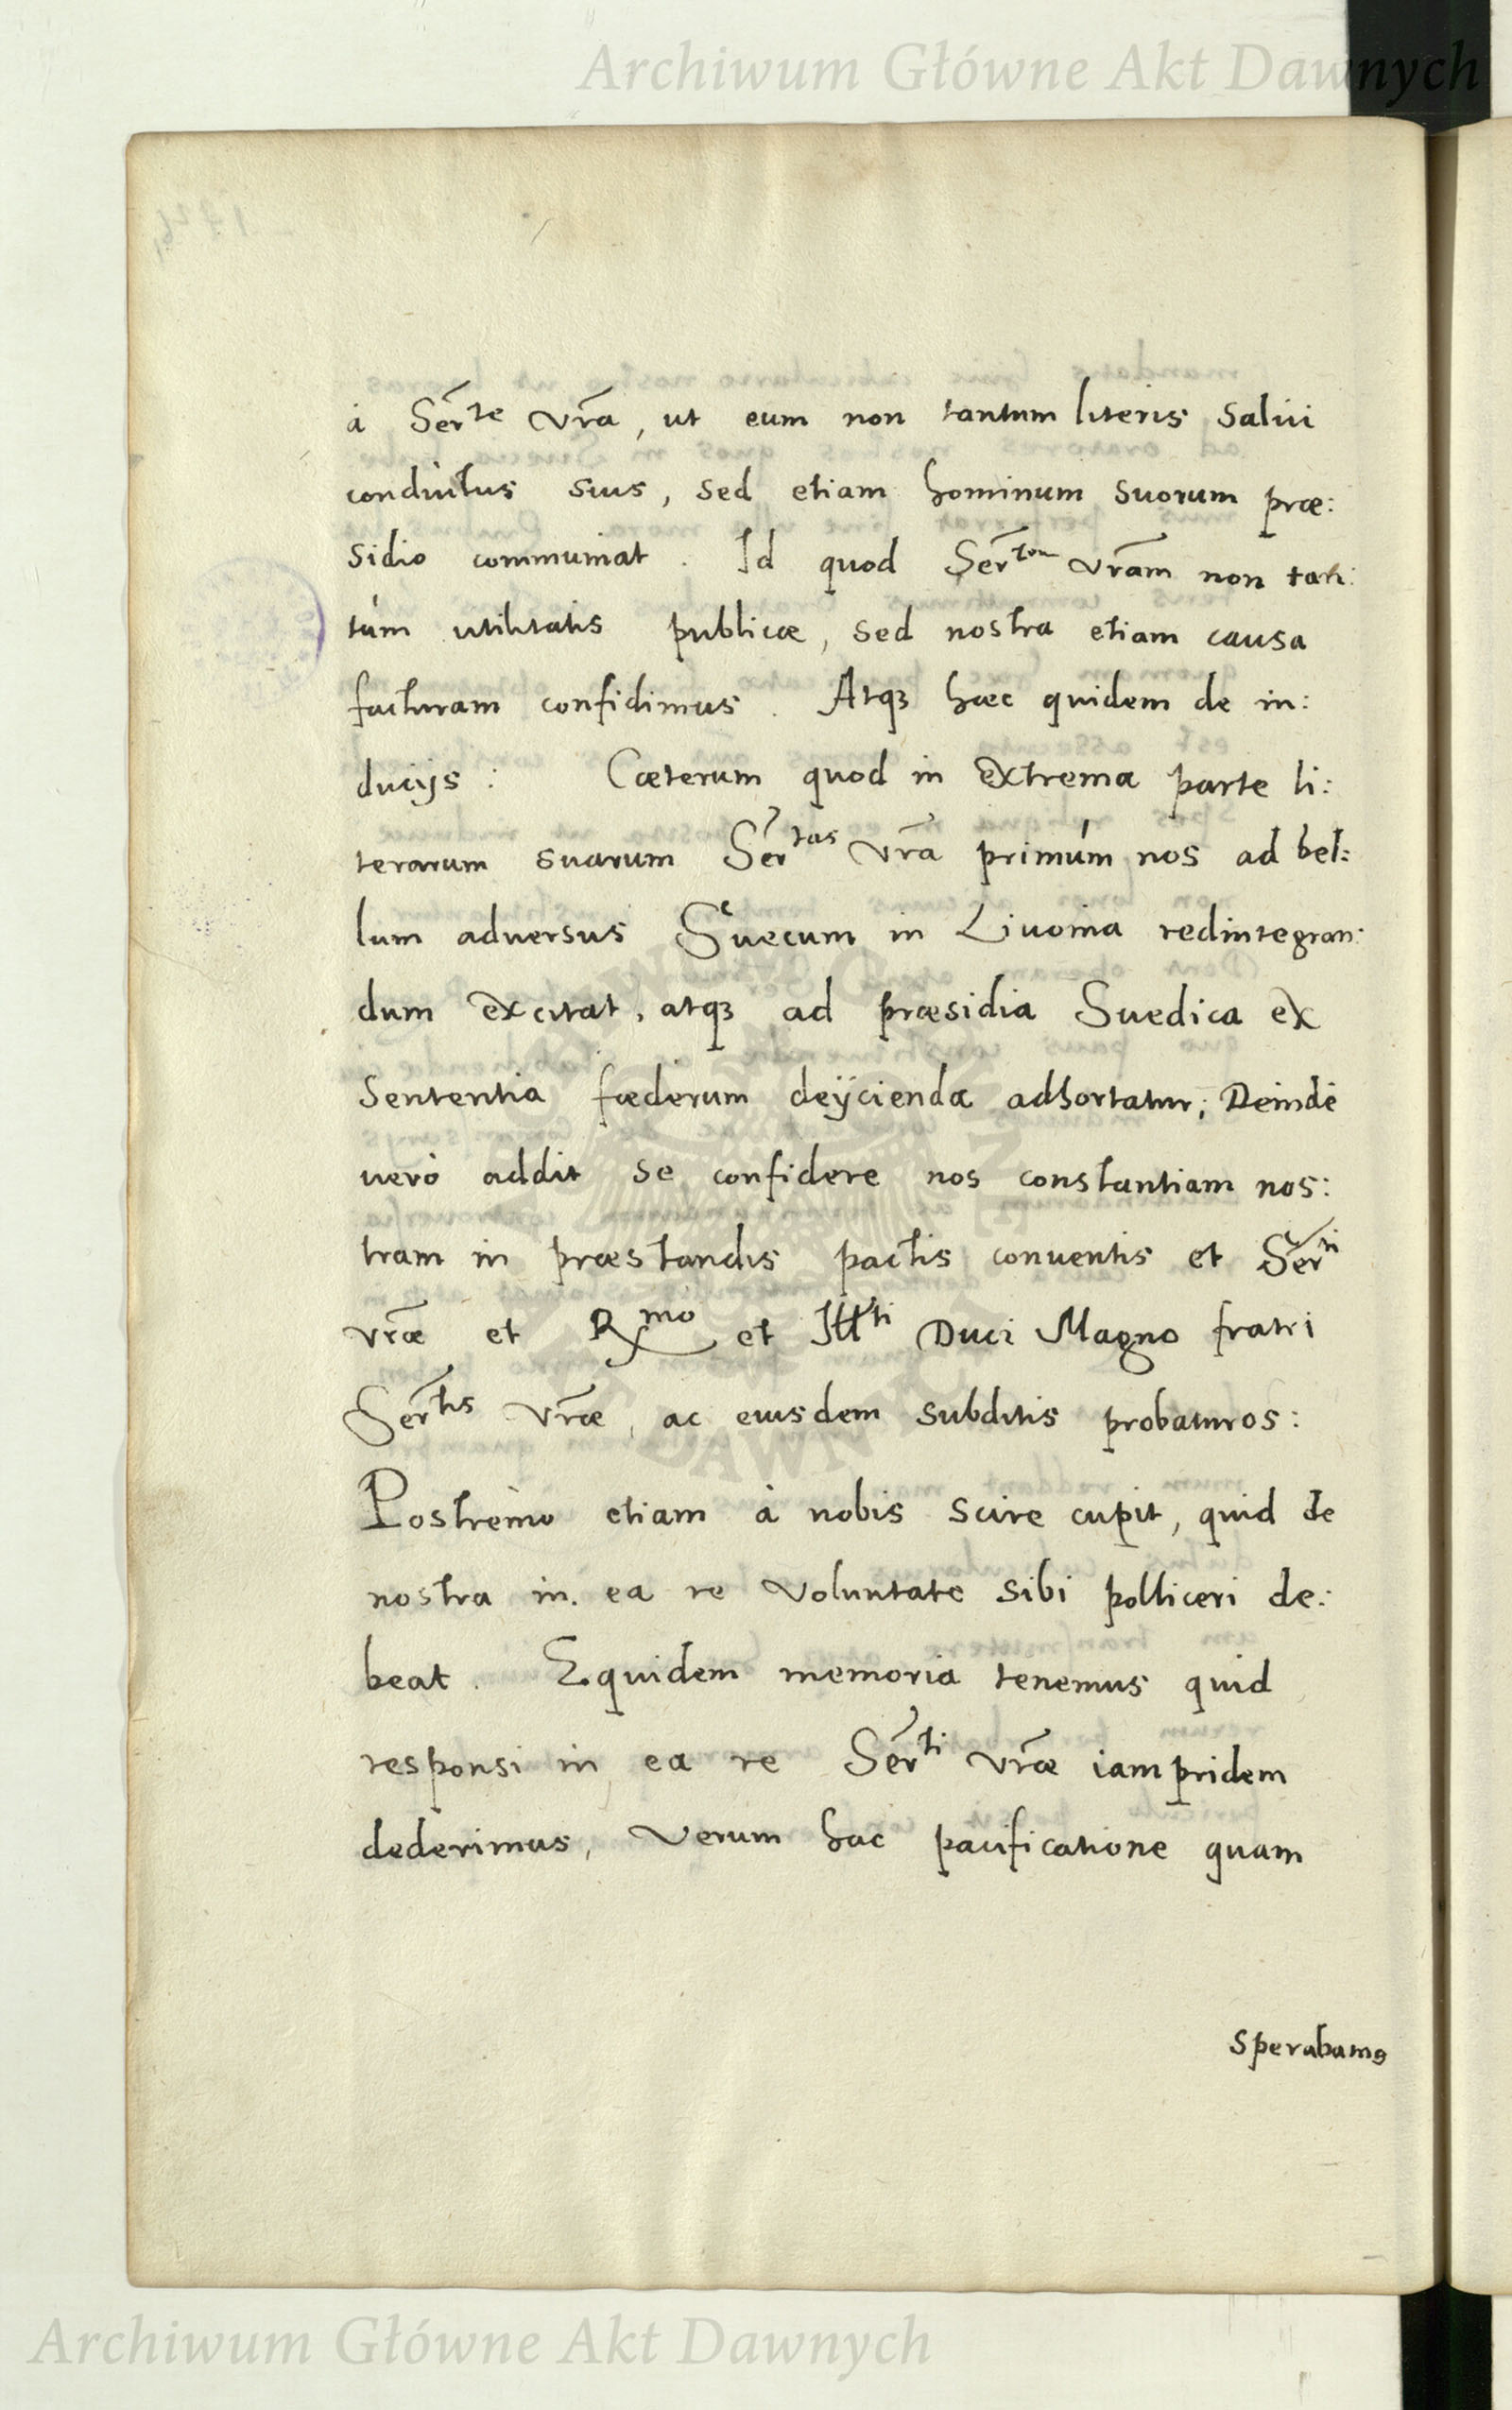 Archiwum Główne Akt Dawnych
à Ser̃te vr̃a, ut eum non tantum literis salui
conductus suis, sed etiam hominum suorum præ:
sidio communiat. Id quod Ser̃tem vr̃am non tan:
tùm utilitatis publicæ, sed nostra etiam causa
facturam confidimus. Atqꝫ hæc quidem de in:
ducijs: Cæterum quod in extrema parte li:
terarum suarum Ser̃tas vr̃a primùm nos ad bel:
lum aduersus Suecum in Liuonia redintegran:
dum excitat, atqꝫ ad præsidia Suedica ex
sententia fæderum deijcienda adhortatur; Deinde
uerò addit se confidere nos constantiam nos:
tram in præstandis pactis conuentis et Ser̃ti
vr̃æ et Rmo et Illti Duci Magno fratri
Ser̃tis vr̃æ, ac eiusdem subditis probaturos:
Postremo etiam à nobis scire cupit, quid de
nostra in ea re voluntate sibi polliceri de:
beat. Equidem memoria tenemus quid
responsi in ea re Ser̃ti vr̃æ iampridem
dederimus, verum hac pacificatione quam
sperabamꝰ
Archiwum Główne Akt Dawnych